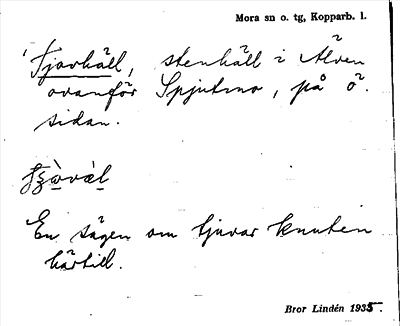 Mora sn o. tg, Kopparb. l.
Tjovhäll, stenhäll i Älven
ovanför Spjutmo, på ö.
sidan.
En sägen om tjuvar knuten
härtill.
Bror Lindén 1935.